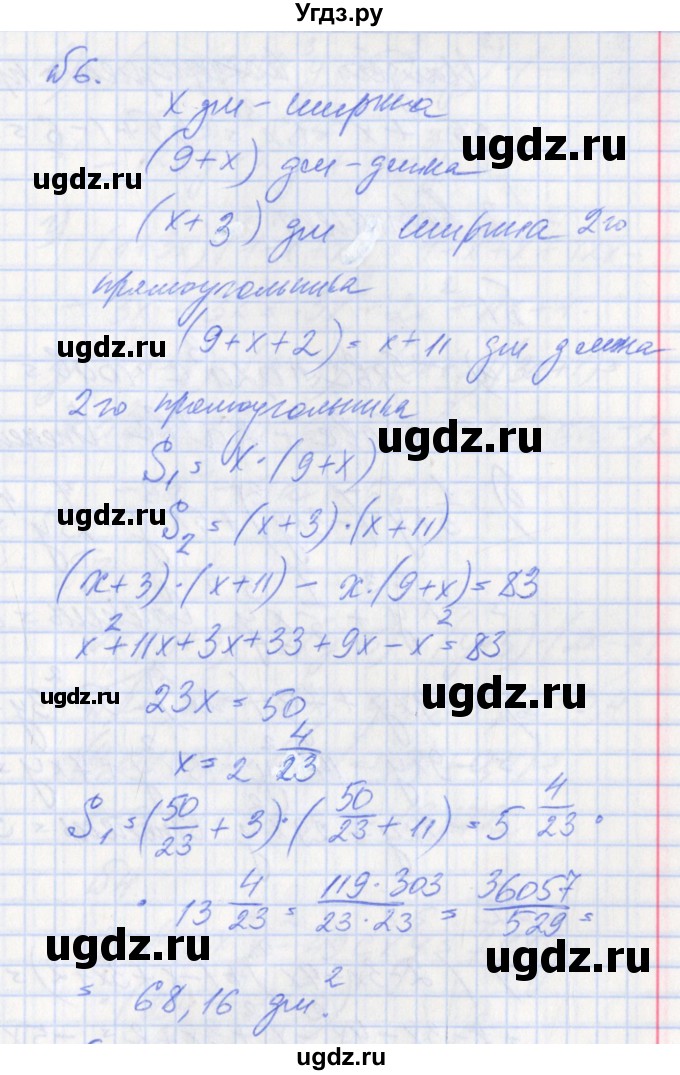 Угдз.ру
№6.
x дм - ширина
ugdz.ru
(9+x) дм - длина
ugdz.ru
(x+3) дм ширина 2го
прямоугольника
ugdz.ru
(9+x+2) = x+11 дм длина
2го прямоугольника
ugdz.ru
S₁ = x·(9+x)
ugdz.ru
S₂ = (x+3)·(x+11)
(x+3)·(x+11) - x·(9+x) = 83
x²+11x+3x+33+9x-x² = 83
ugdz.ru
23x = 50
ugdz.ru
x = 2 4/23
S₁ = (50/23 + 3)·(50/23 + 11) = 5 4/23 ·
· 13 4/23 = 119·303/23·23 = 36057/529 =
ugdz.ru
ugdz.ru
= 68,16 дм².
ugdz.ru